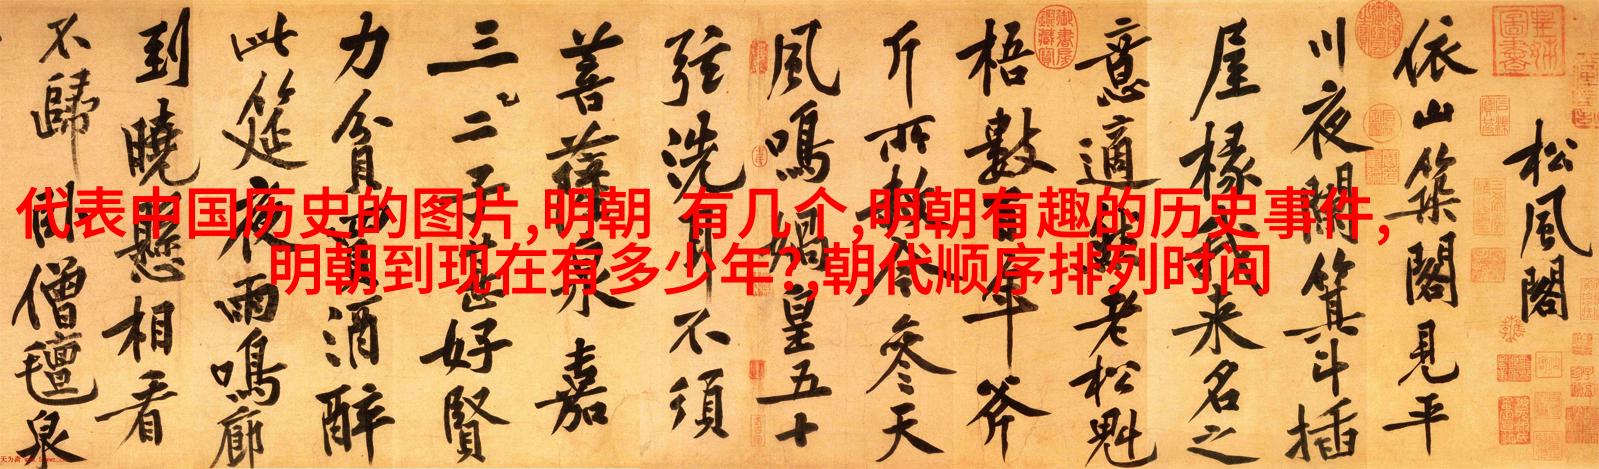 代表中国历史的图片,明朝 有几个,明朝有趣的历史事件,
明朝到现在有多少年?,朝代顺序排列时间
松風閣
依山築閣見平
川夜闌箕斗插
屋椽我来名之
意適然老松魁
梧數百年斧
斤所赦今參天
風鳴媧皇五十
弦洗耳不須
菩薩泉嘉
三二子甚好賢
力貧買酒醉
此筵夜雨鳴廊
到曉懸相看
不歸卧僧氊泉